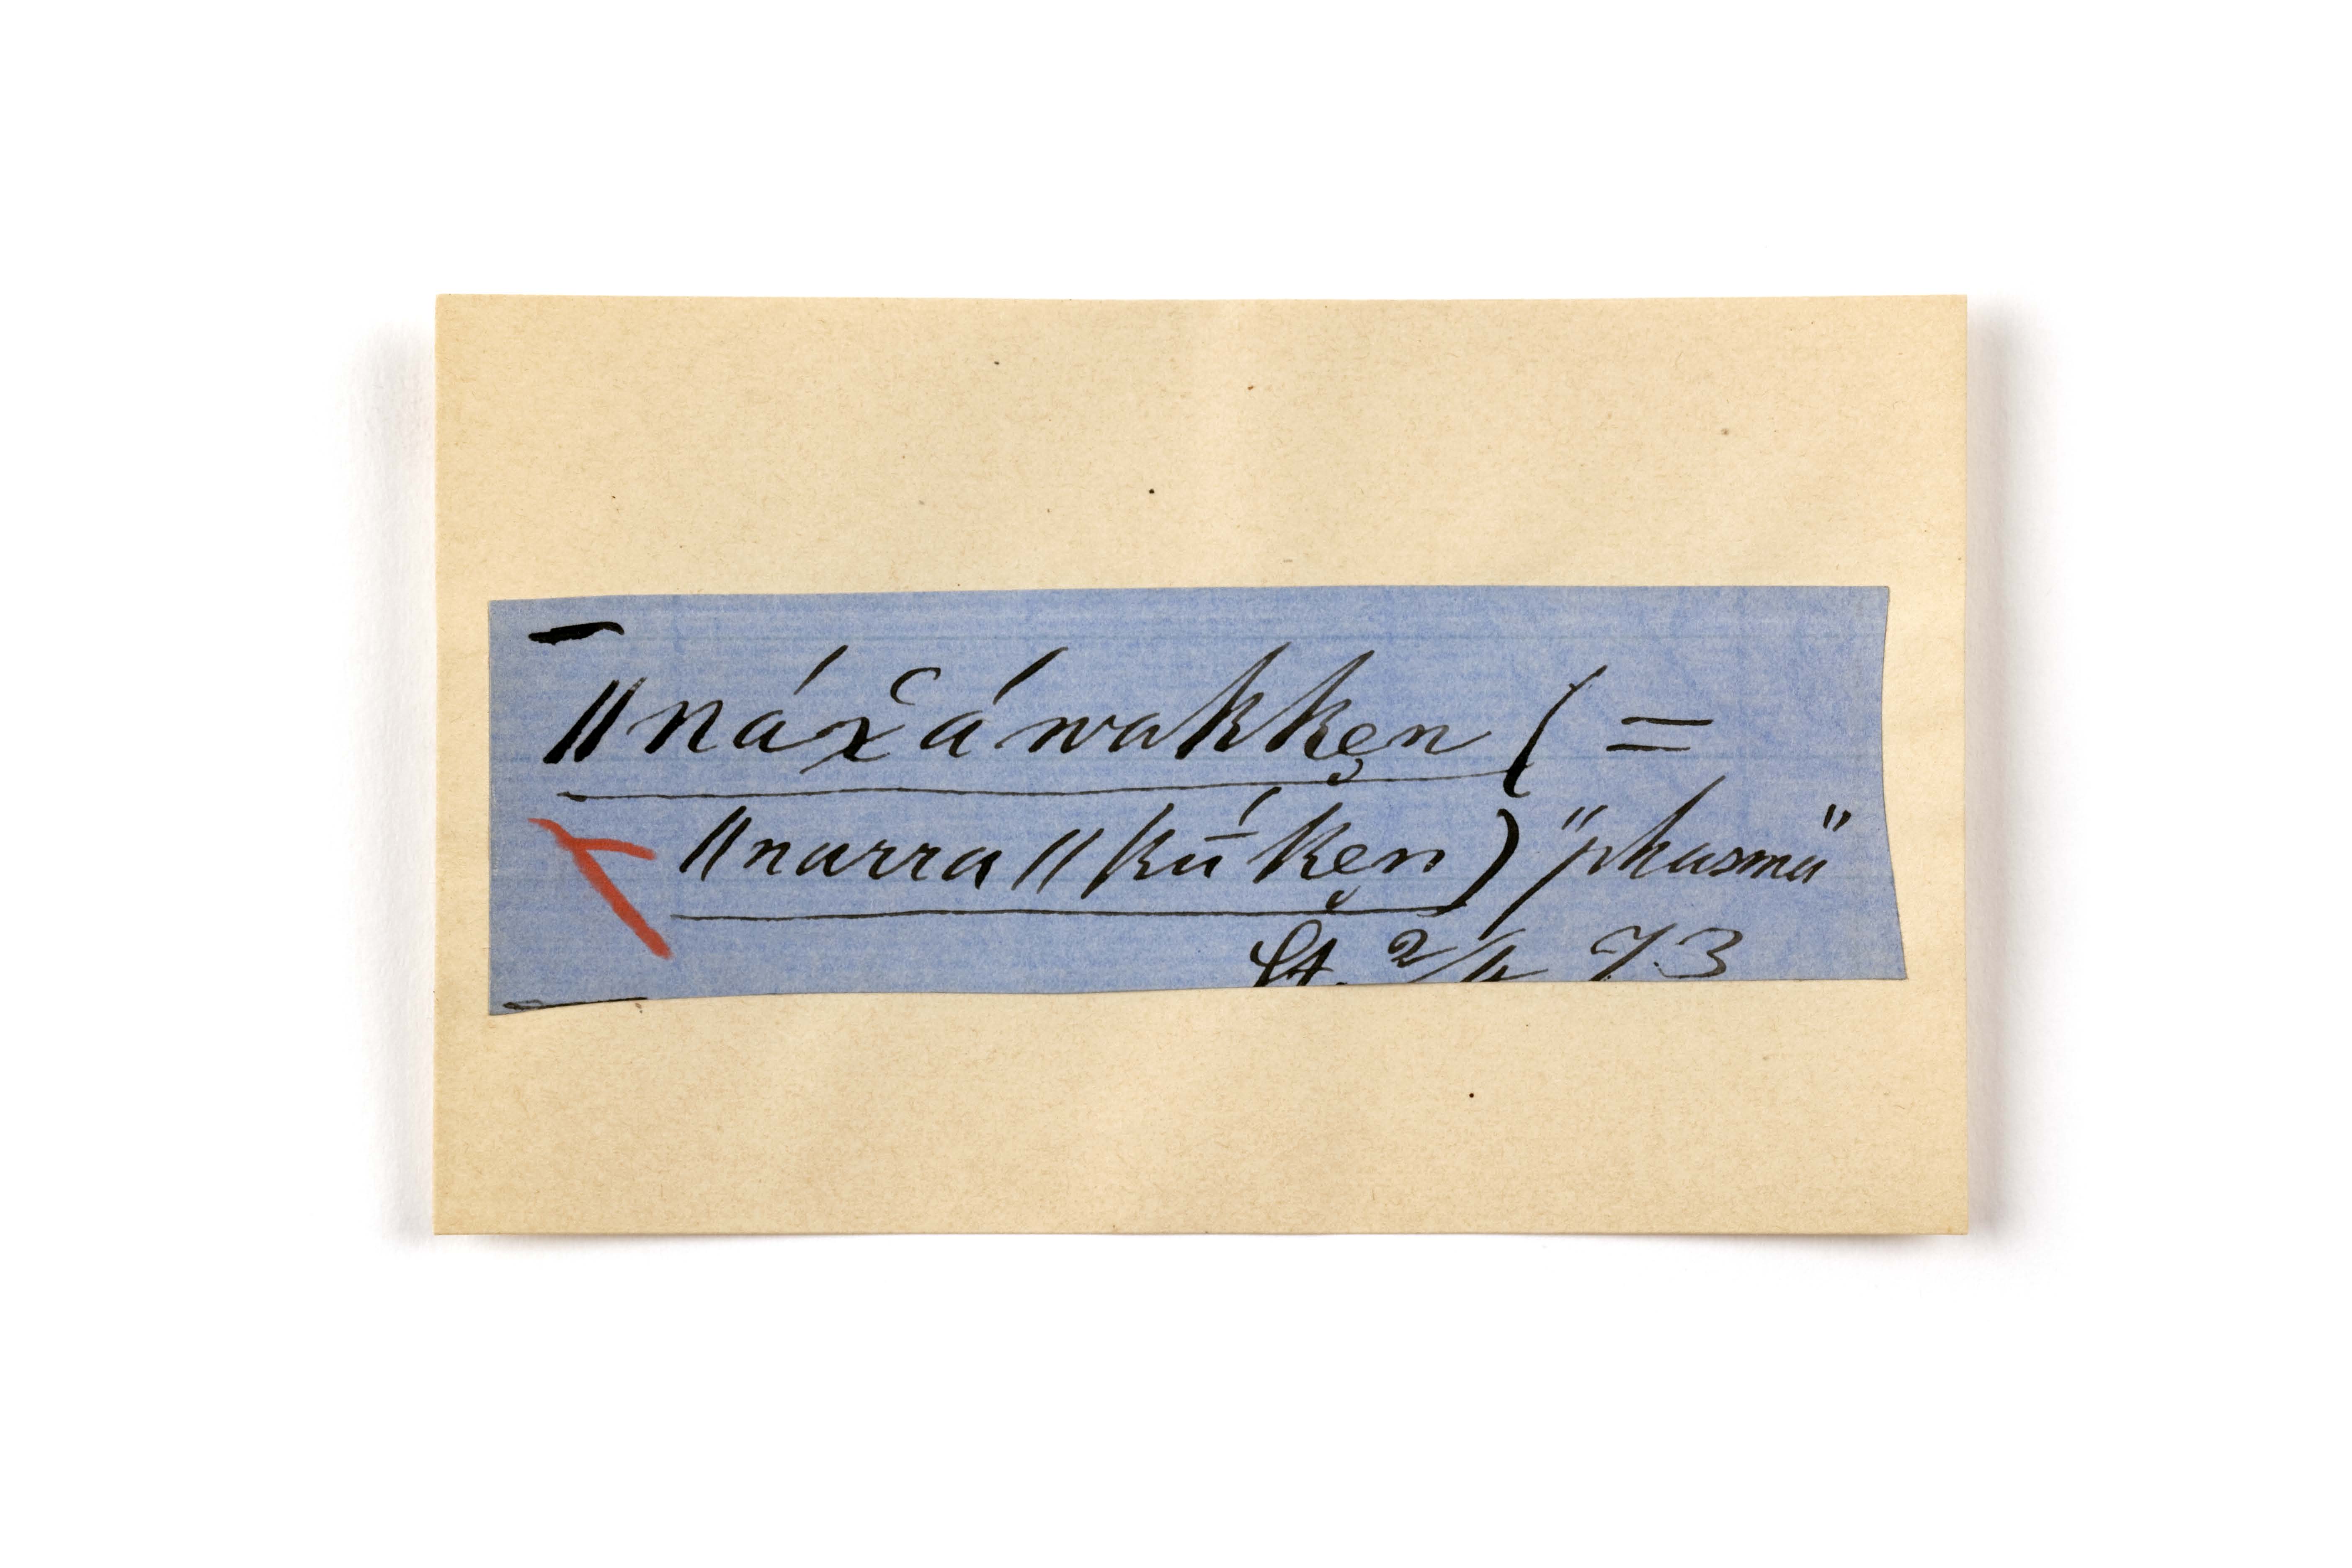 ǁnáx̆áwakkẹn ( =
ǁnarra ǁkū́kẹn) "phasma"
St. 2/4 73